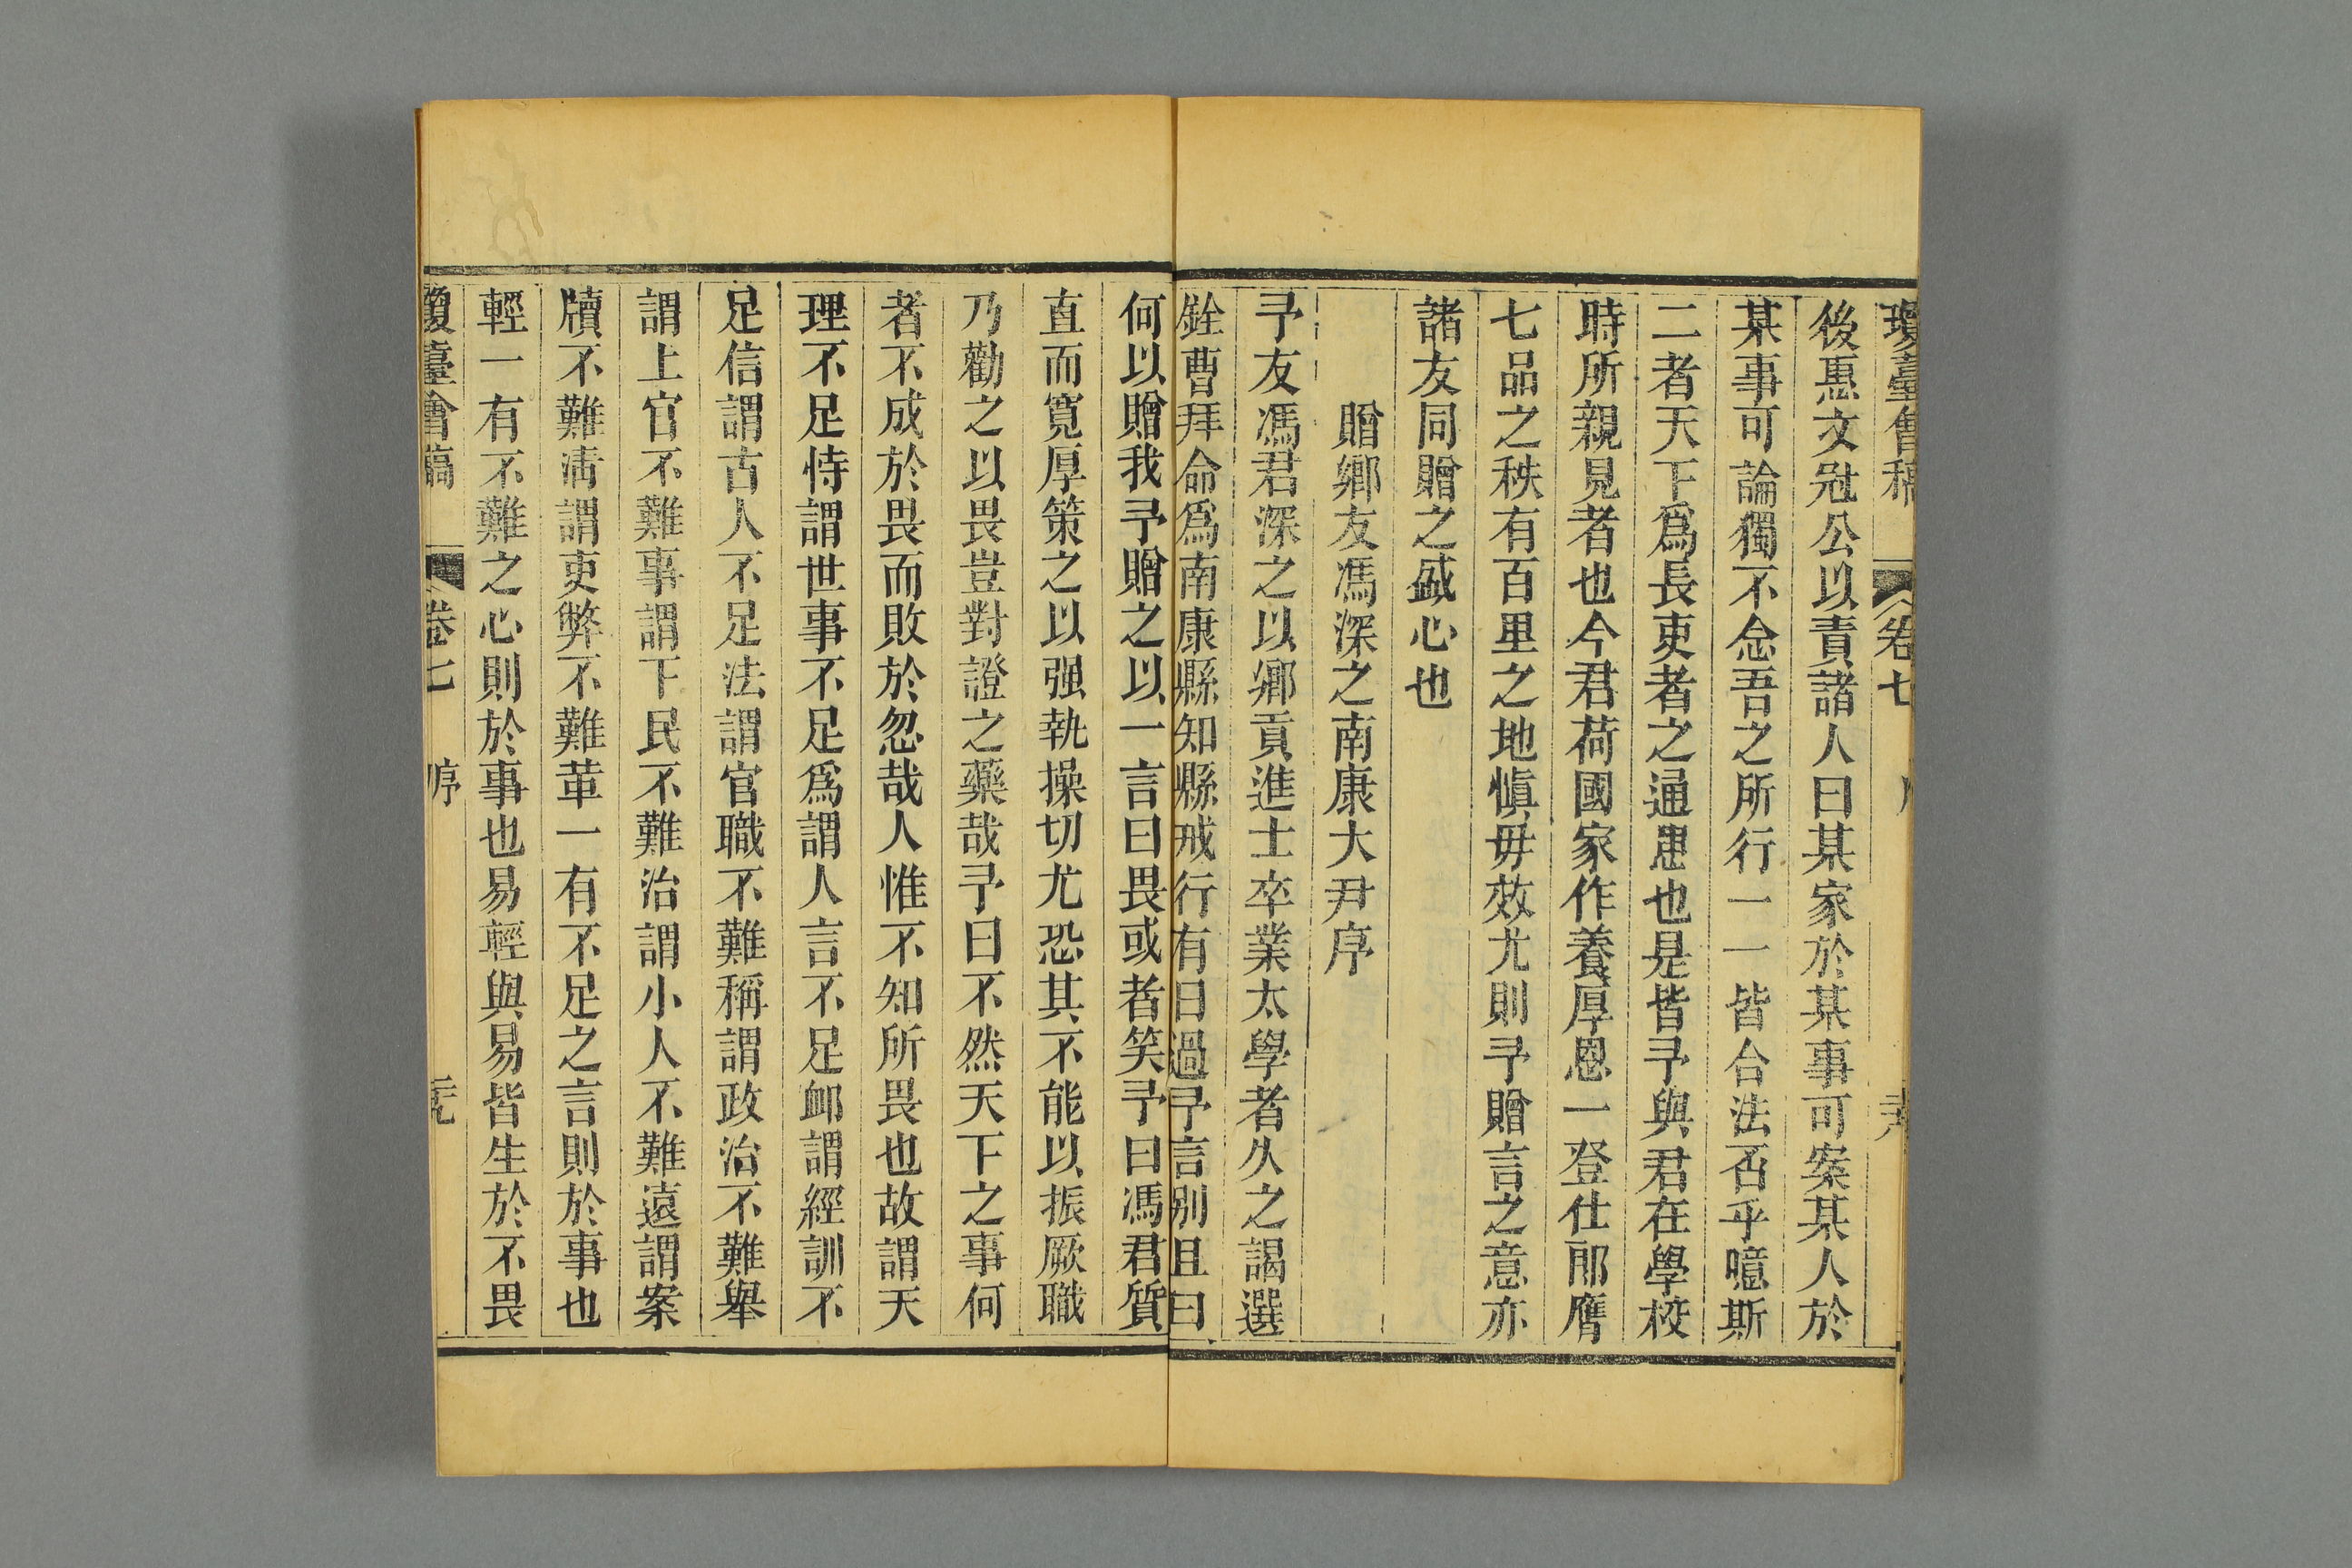 瓊臺會稿 卷七
後惠文冠公以責諸人曰某家於某事可案某人於
某事可論獨不念吾之所行一一皆合法否乎噫斯
二者天下爲長吏者之通患也是皆予與君在學校
時所親見者也今君荷國家作養厚恩一登仕郎膺
七品之秩有百里之地愼毋效尤則予贈言之意亦
諸友同贈之盛心也
贈鄉友馮深之南康大尹序
予友馮君深之以鄉貢進士卒業太學者久之謁選
銓曹拜命爲南康縣知縣戒行有日過予言別且曰
何以贈我予贈之以一言曰畏或者笑予曰馮君質
直而寬厚策之以强執操切尤恐其不能以振厥職
乃勸之以畏豈對證之藥哉予曰不然天下之事何
者不成於畏而敗於忽哉人惟不知所畏也故謂天
理不足恃謂世事不足爲謂人言不足卹謂經訓不
足信謂古人不足法謂官職不難稱謂政治不難舉
謂上官不難事謂下民不難治謂小人不難遠謂案
牘不難淸謂吏弊不難革一有不足之言則於事也
輕一有不難之心則於事也易輕與易皆生於不畏
瓊臺會稿 卷七 序